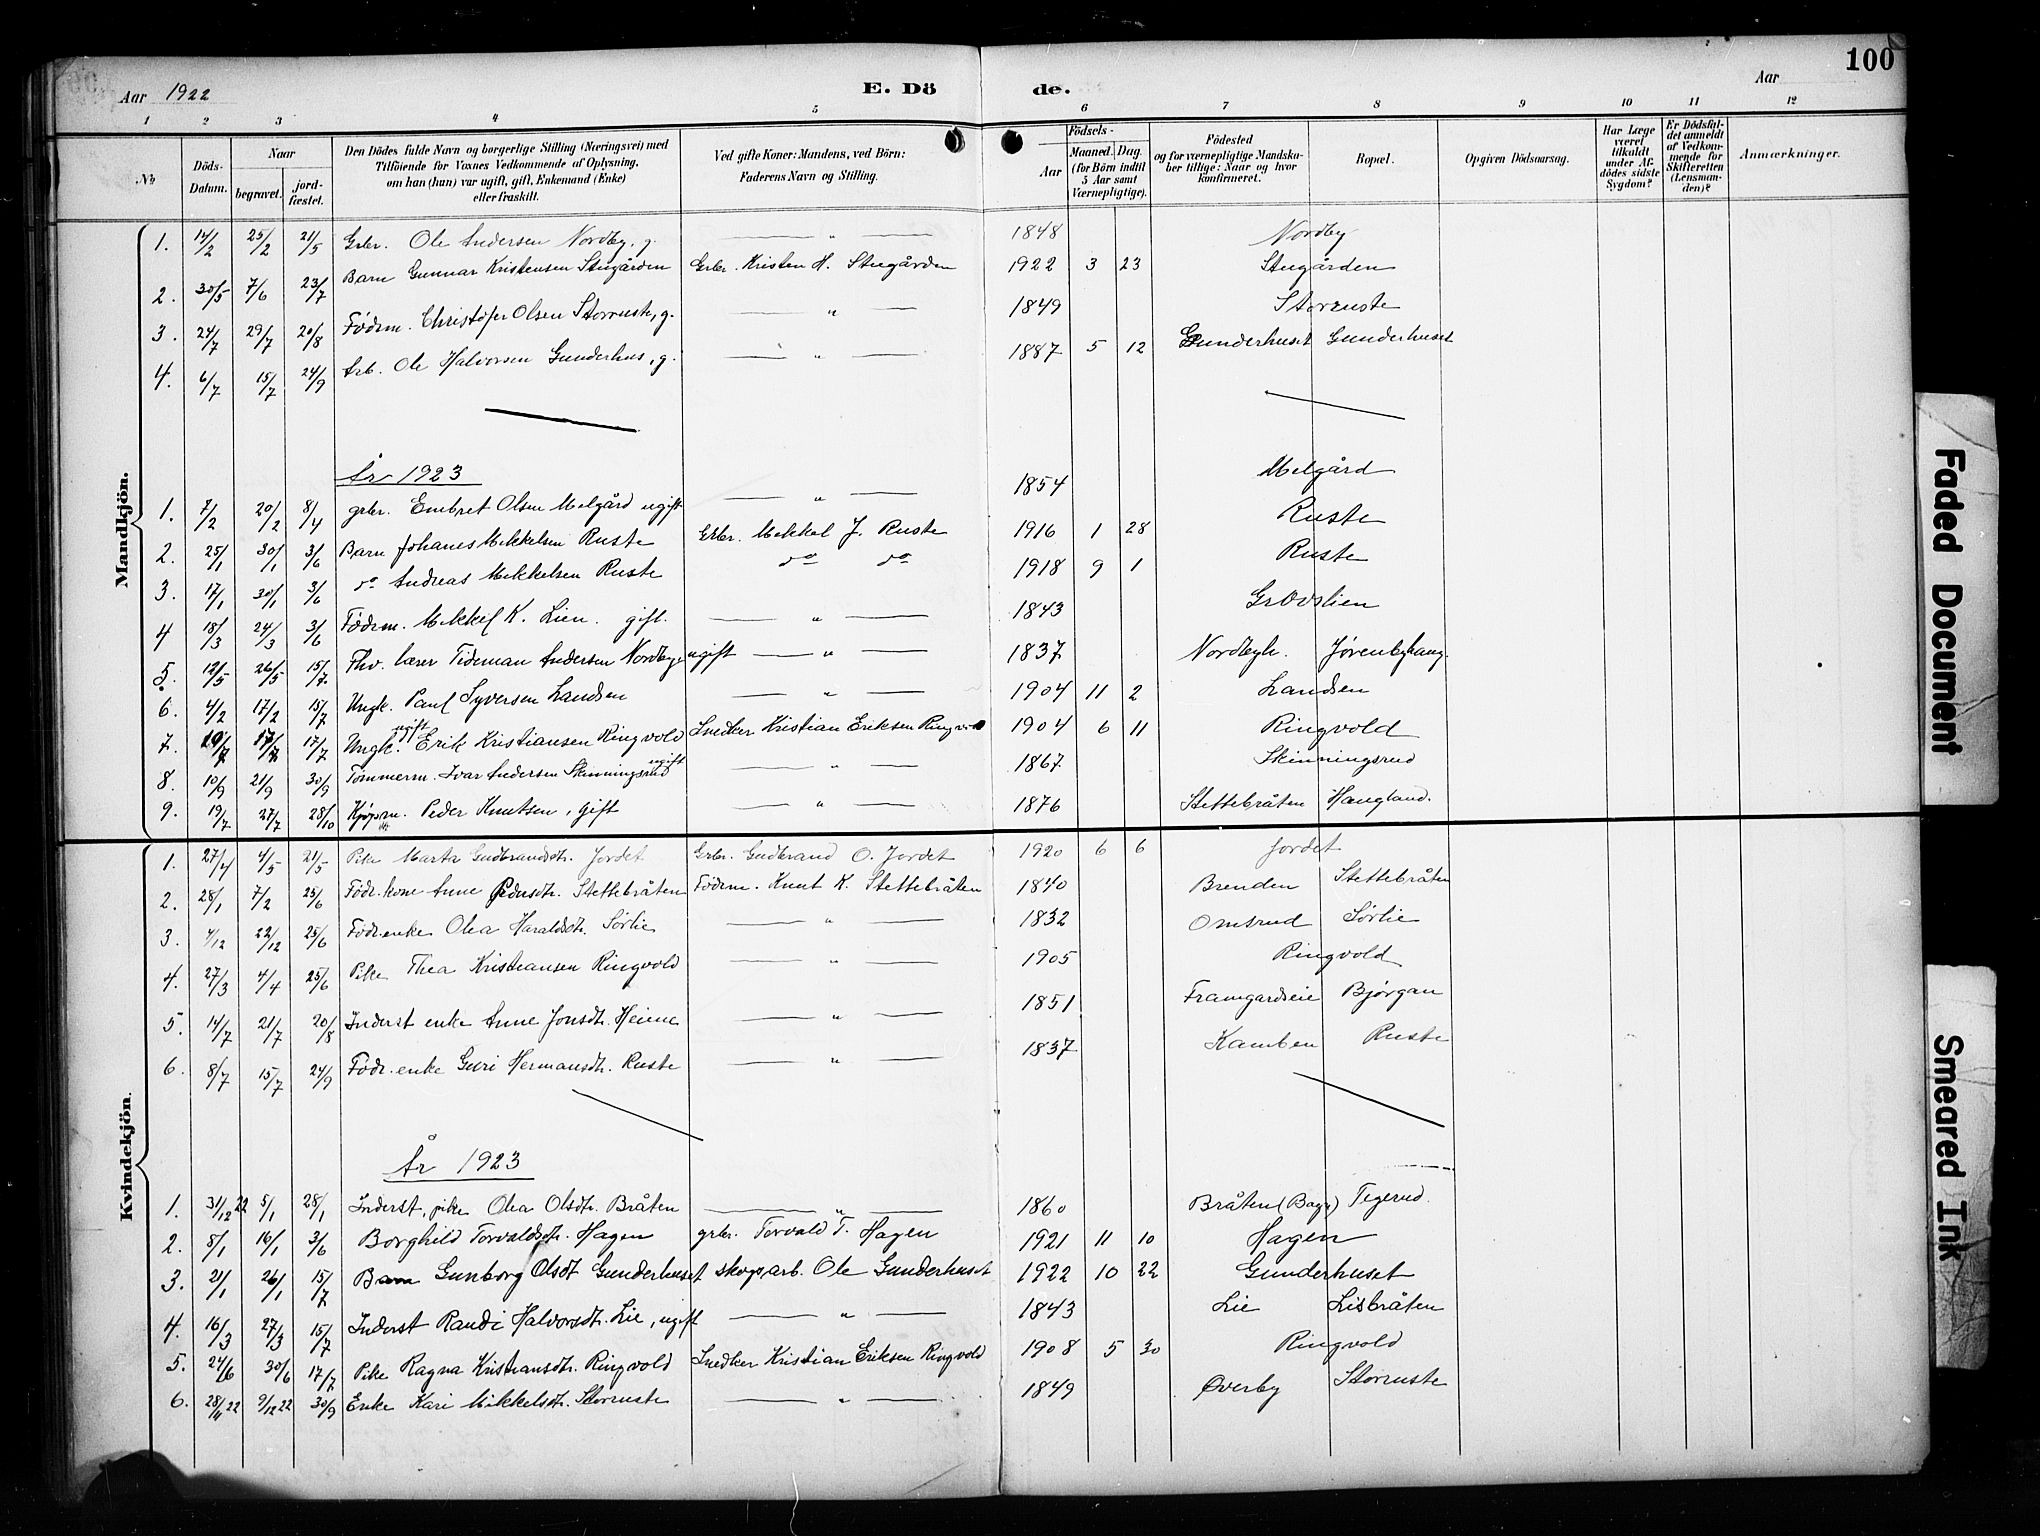 100
Aar 1922
E. Dö de.
Aar
1 2 3 4 5 6 7 8 9 10 11 12
No
Döds-Datum.
Naar
begravet.
jord-fæstet.
Den Dödes fulde Navn og borgerlige Stilling (Næringsvei) med Tilföiende for Voxnes Vedkommende af Oplysning, om han (hun) var ugift, gift, Enkemand (Enke) eller fraskilt.
Ved gifte Koner: Mandens, ved Börn: Faderens Navn og Stilling.
Födsels-
Aar
Maaned. Dag.
(for Börn indtil 5 Aar samt Værnepligtige).
Födested og for værnepligtige Mandskaber tillige: Naar og hvor konfirmeret.
Bopæl.
Opgiven Dödsaarsag.
Har Læge været tilkaldt under Afdödes sidste Sygdom?
Er Dödsfaldet anmeldt af Vedkommende for Skifteretten (Lensmanden)?
Anmærkninger.
Mandkjön.
1. 14/2 25/2 21/5 Grbr. Ole Andersen Nordby, g. " 1848 Nordby
2. 30/5 7/6 23/7 Barn Gunnar Kristensen Stugården Grbr. Kristen H. Stugården 1922 3 23 Stugården
3. 24/7 29/7 20/8 Födrm. Christofer Olsen Storruste, g. " 1849 Storruste
4. 6/7 15/7 24/9 Arb. Ole Halvorsen Gunderhus, g. " 1887 5 12 Gunderhuset Gunderhuset
År 1923
1. 7/2 20/2 8/4 grbr. Embret Olsen Melgård ugift " 1854 Melgård
2. 25/1 30/1 3/6 Barn Johanes Mikkelsen Ruste Grbr. Mikkel J. Ruste 1916 1 28 Ruste
3. 17/1 30/1 3/6 do Andreas Mikkelsen Ruste do do 1918 9 1 Ruste
4 18/3 24/3 3/6 Födrm. Mikkel K. Lien. gift. " 1843 Grövslien
5. 12/5 26/5 15/7 Fhv. lærer Tideman Andersen Nordbye ugift " 1837 Nordbyh. Jørenbyhaug.
6. 4/2 17/2 15/7 Ungk. Paul Syversen Landsen " 1904 11 2 Landsen
7. 17/7 17/7 Ungk. ugift Erik Kristiansen Ringvold Snedker Kristian Eriksen Ringvold 1904 6 11 Ringvold
8. 10/9 21/9 30/9 Tømmerm. Ivar Andersen Skinningsrud ugift " 1867 Skinningsrud
9. 19/7 27/7 28/10 Kjøpm. Peder Knutsen, gift " 1876 Stettebråten Haugland.
Kvindekjön.
1. 27/4 4/5 21/5 Pike Marta Gudbrandsdtr. Jordet Grbr. Gudbrand O. Jordet 1920 6 6 Jordet
2. 28/1 7/2 25/6 Födr. kone Anne Pedersdtr. Stettebråten Födrm. Knut K. Stettebråten 1840 Brenden Stettebråten
3. 4/12 22/12 25/6 Födr. enke Olea Haraldsdtr. Sørlie " 1832 Omsrud Sørlie
4. 27/3 4/4 25/6 Pike Thea Kristiansen Ringvold " 1905 Ringvold
5. 14/7 21/7 20/8 Inderst enke Anne Jonsdtr. Heiene " 1851 Framgardseie Bjørgan
6. 8/7 15/7 24/9 Födr. enke Guri Hermansdtr. Ruste " 1837 Kamben Ruste
År 1923
1. 31/12 22 5/1 28/1 Inderst, pike Olea Olsdtr. Bråten " 1860 Bråten (Bagn) Tegerud.
2. 8/1 16/1 3/6 Borghild Torvaldsdtr. Hagen grbr. Torvald T. Hagen 1921 11 10 Hagen
3. 21/1 26/1 15/7 Barn Gunborg Olsdt Gunderhuset skogsarb. Ole Gunderhuset 1922 10 22 Gunderhuset
4. 16/3 27/3 15/7 Inderst Randi Halvorsdtr. Lie, ugift " 1843 Lie Lisbråten
5. 24/6 30/6 17/7 Pike Ragna Kristiansdtr. Ringvold Snedker Kristian Eriksen Ringvold 1908 5 30 Ringvold
6. 28/11 22 9/12 22 30/9 Enke Kari Mikkelsdtr. Storruste " 1849 Øverby Storruste
Faded Document
Smeared Ink